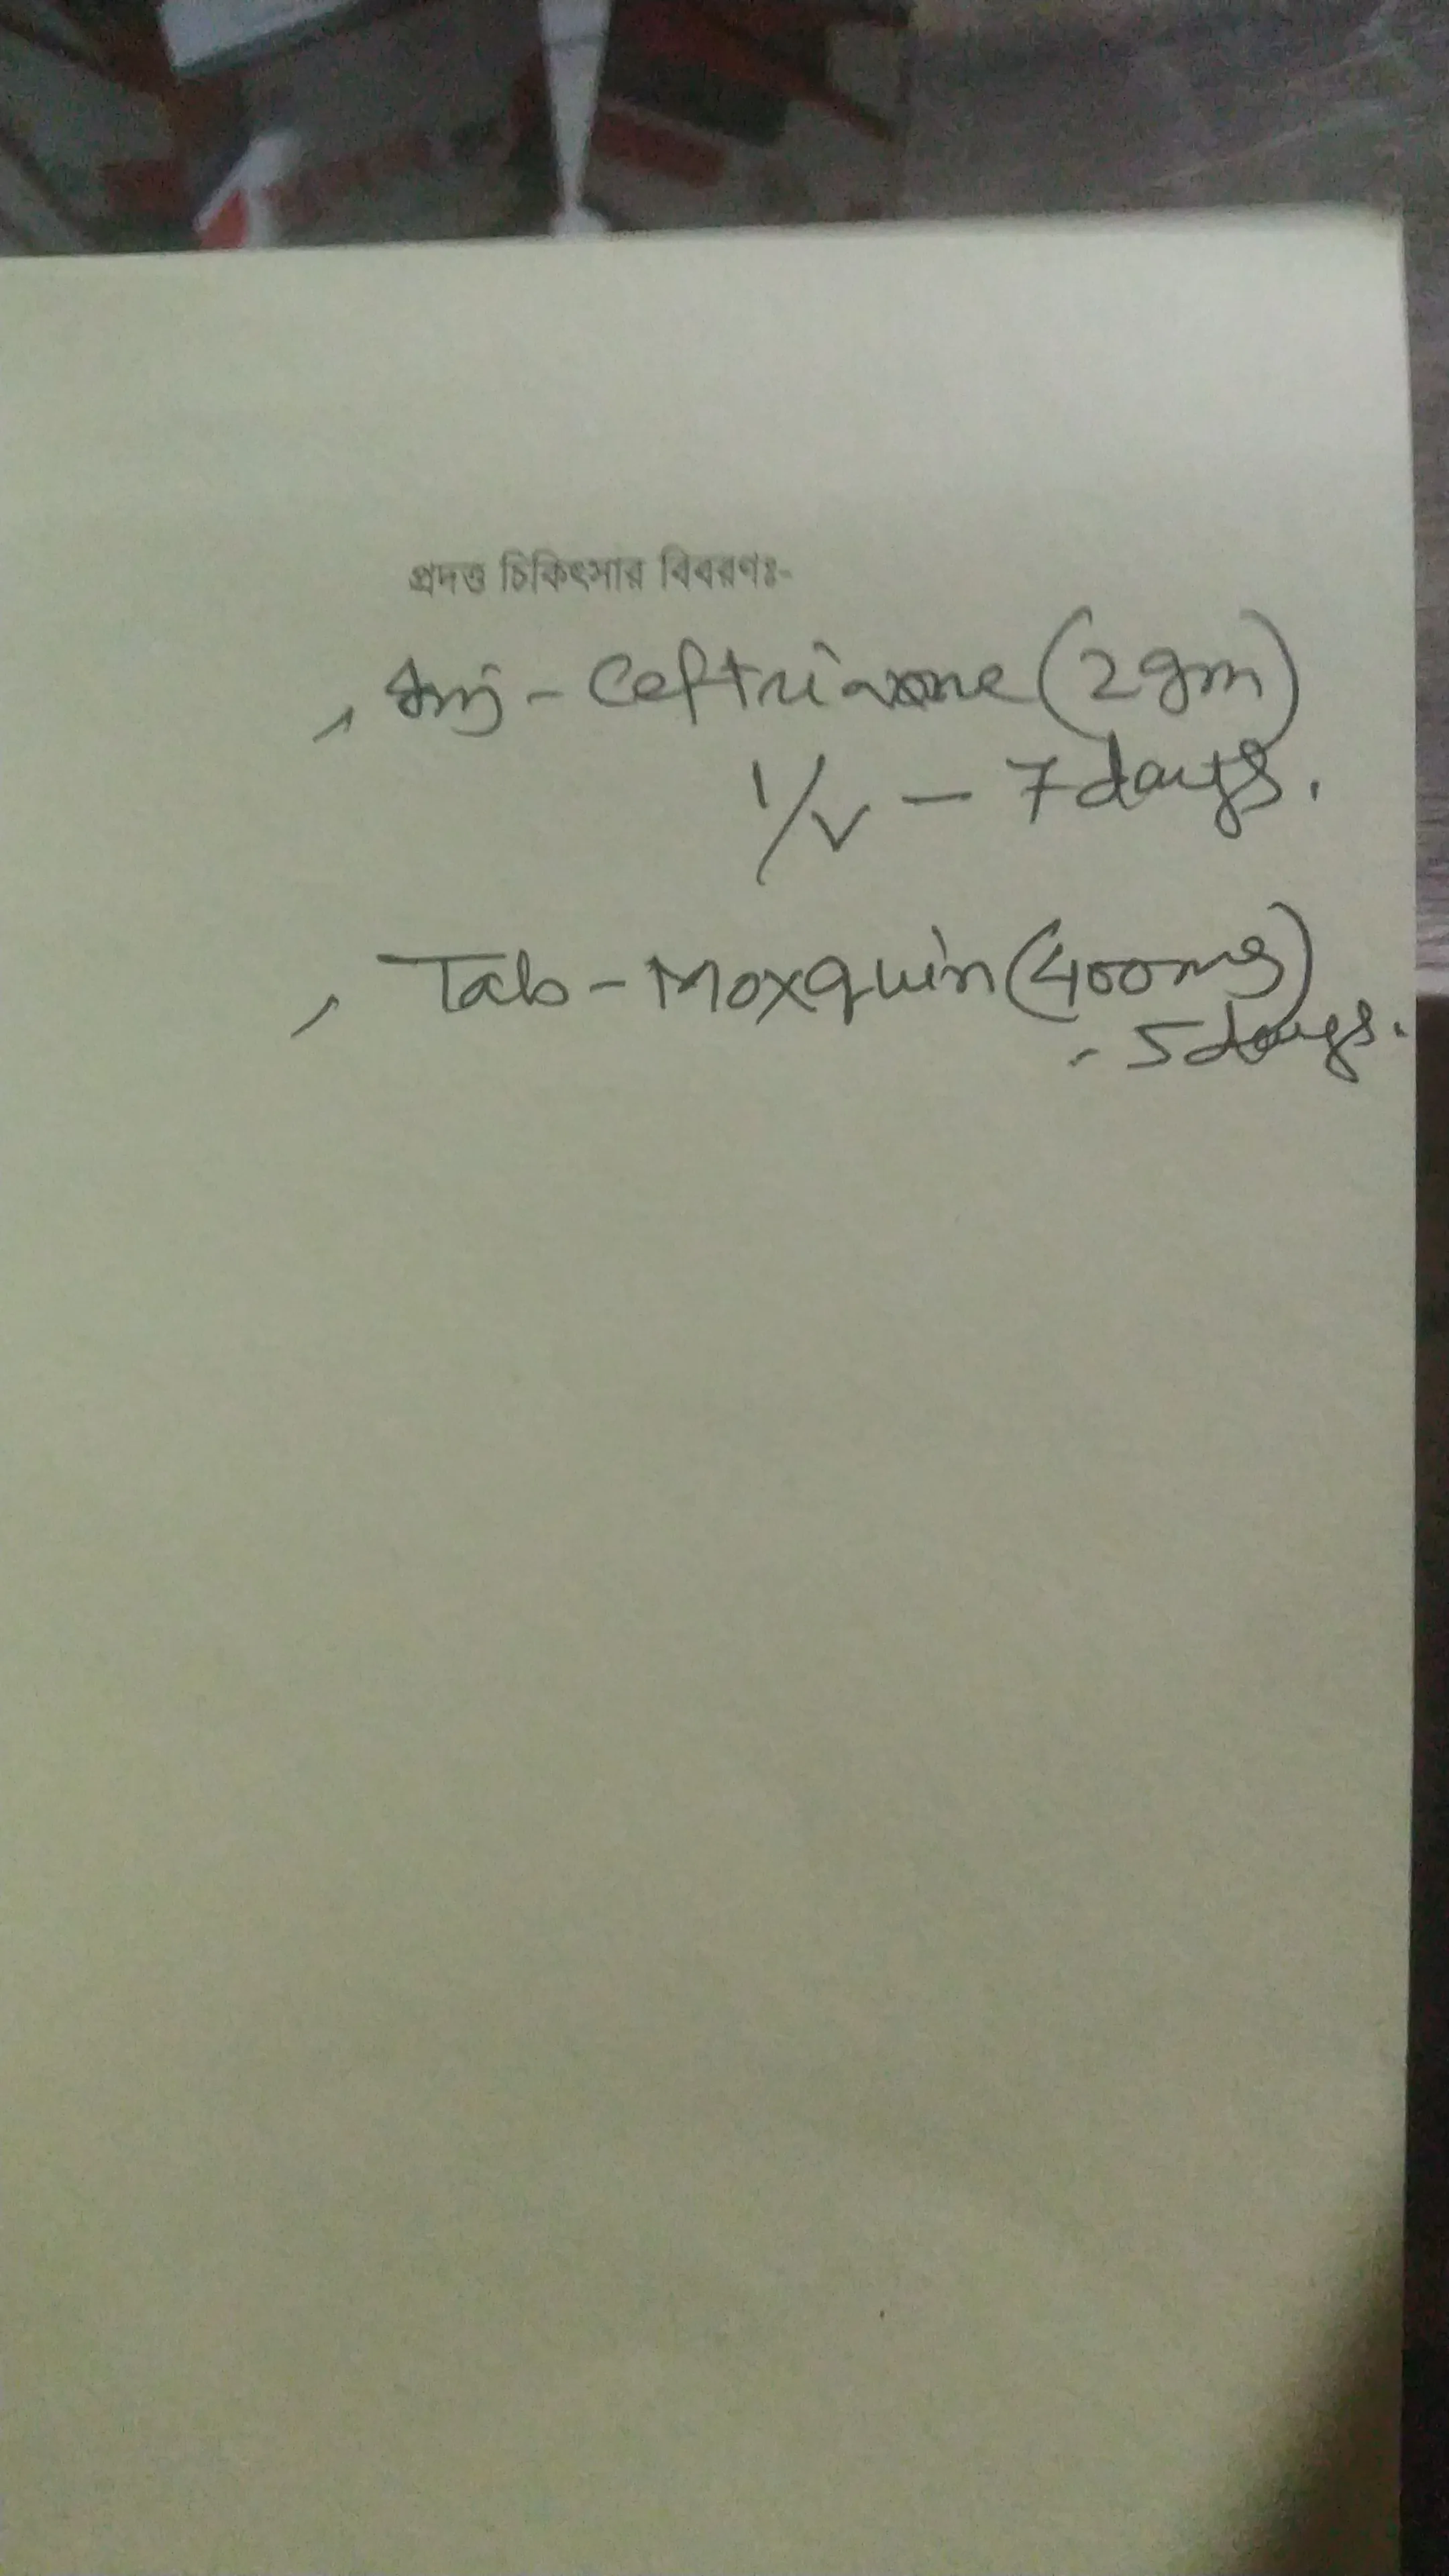 প্রদত্ত চিকিৎসার বিবরণঃ-
, Inj - Ceftriaxone (2gm)
I/V - 7days.
, Tab - Moxquin (400mg)
- 5days.